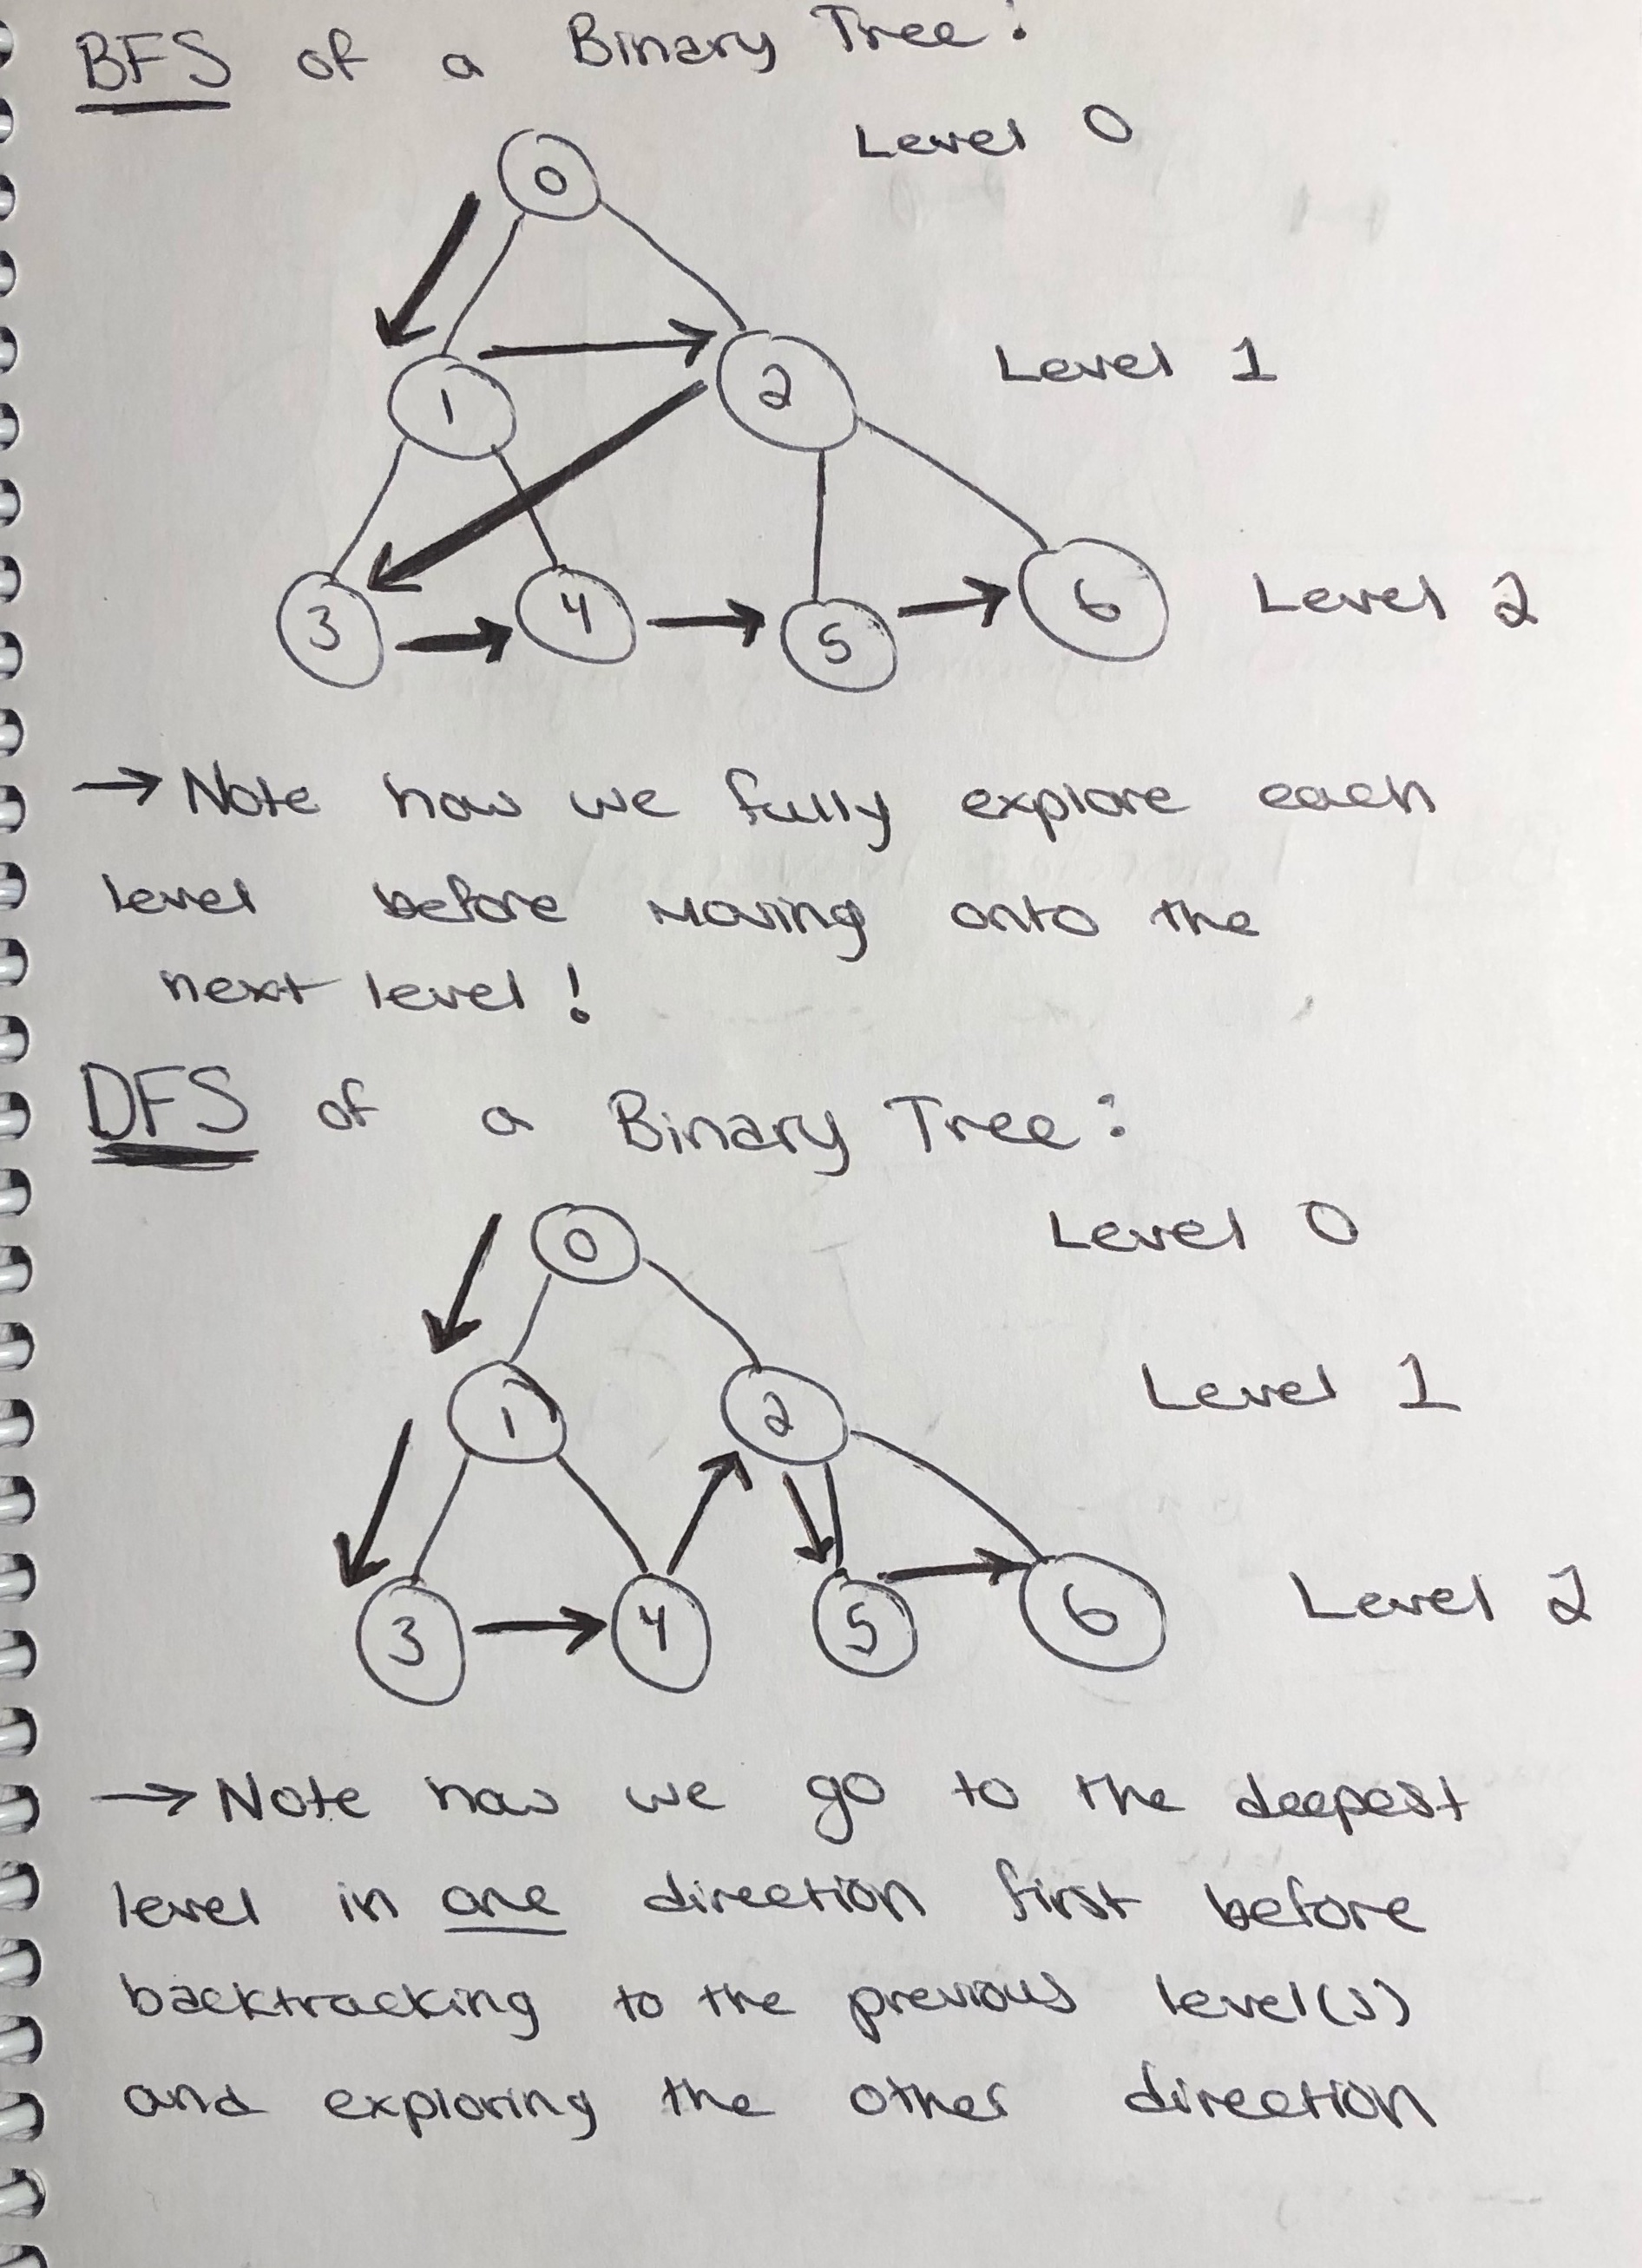 BFS of a Binary Tree:
Level 0
0
Level 1
1 2
Level 2
3 4 5 6
→ Note how we fully explore each
level before moving onto the
next level!
DFS of a Binary Tree:
Level 0
0
Level 1
1 2
Level 2
3 4 5 6
→ Note how we go to the deepest
level in one direction first before
backtracking to the previous level(s)
and exploring the other direction